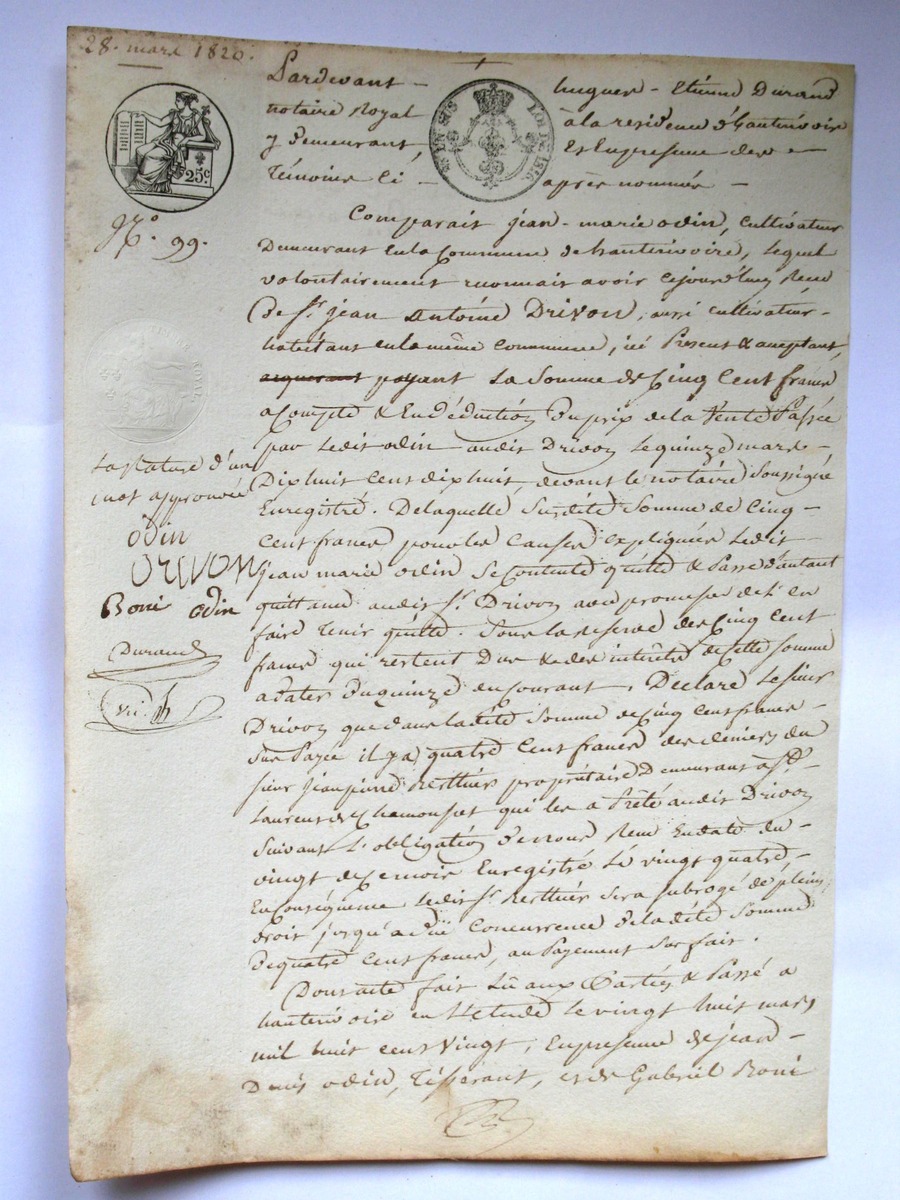 28. mars 1820.
Pardevant - hugues - Etiénne Durand
notaire Royal à la residence d'hauterivoire
y demeurant, Et En presence des -
Témoins Ci - après nommés -
25c
TIMB EN SUS LOI DE 1816
N.° 99.
Comparait jean-marie odin, Cultivateur
Demeurant en la Commune de hauterivoire, lequel
volontairement reconnait avoir cejourd'huy Recu
De Sr. jean Antoine Drivon, aussi cultivateur-
habitant en la même Commune, icé Present & aceptant,
acquerant payant La Somme de Cinq Cent francs
a Compte & En déduction Du prix de la Vente Passée
par Ledit odin audit Drivon Le quinze mars -
Dix huit Cent dix huit, devant le notaire Soussigné
Enregistré. De laquelle Susdité Somme de Cinq
Cent francs pour les Causes Expliquées Ledit
jean marie odin Se Contente quitte & Passe d'autant
quittance audit Sr. Drivon avec promesse de l'en
faire Tenir quitte. Sous la reserve des Cinq Cent
francs qui restent Dus & des intérêts de Cette Somme
a dater Du quinze du Courant, Déclare Le sieur
Drivon que dans la dité Somme de Cinq Cent francs
Sus Payée il y a quatre Cent francs des deniers du
sieur jean pierre propriétaire Demeurant a St.
Laurent de Chamousset qui les a Prêté audit Drivon
Suivant L'obligation d'enous Recu En date du
vingt de Ce mois Enregistré Le vingt quatre,
En Conséquence Ledit Sr. Sera subrogé de plein
droit jusqu'a Concurrence de la dité Somme
De quatre Cent francs, au Payement Sus fait.
Dont acte fait Lû aux Partiés & Passé a
hauterivoire en L'Etude Le vingt huit mars
mil huit Cent Vingt, En presence de jean-
Denis odin, Tisserant, et de Gabriel Roni
La rature d'un
mot approuvée
odin
DRIVON
Roni odin
Durand